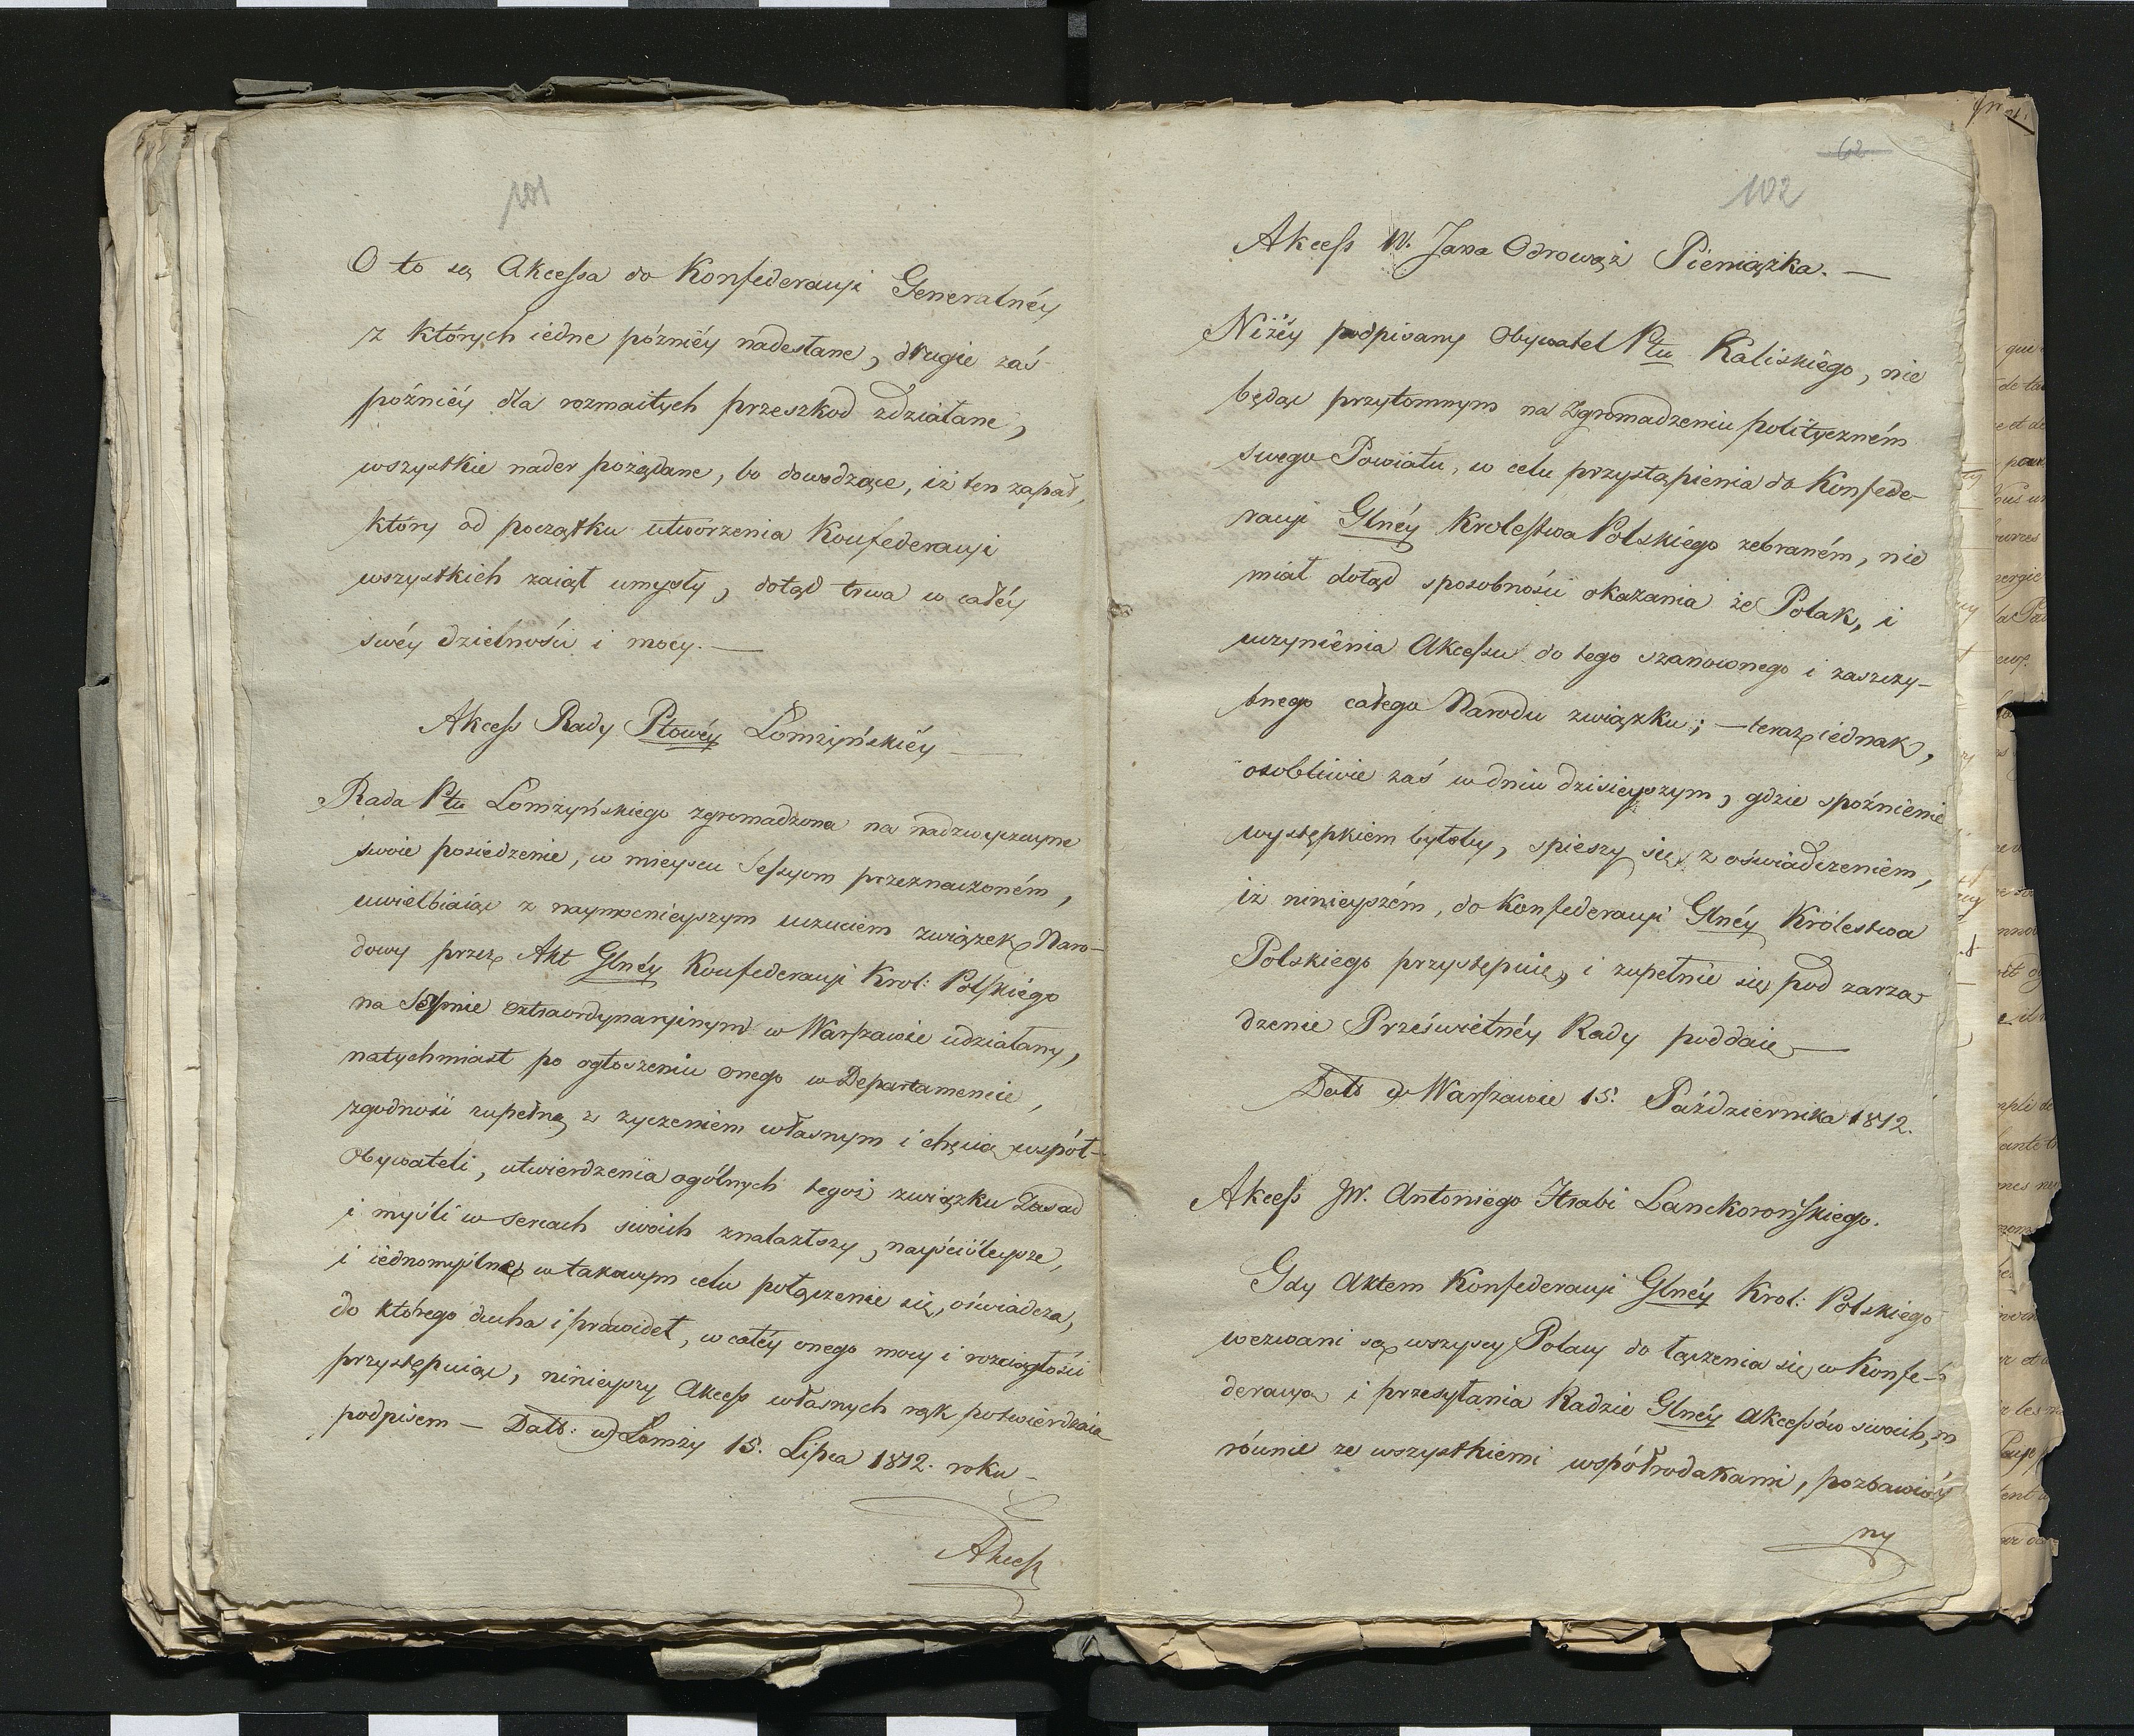 101
O to są Akcessa do Konfederacyi Generalnéy
z których iedne późniéy nadesłane, drugie zaś
późniéy dla rozmaitych przeszkod zdziałane,
wszystkie nader pożądane, bo dowodzące, iż ten zapał,
który od początku utworzenia Konfederacyi
wszystkich zaiął umysły, dotąd trwa w całéy
swéy dzielności i mocy. —
Akcess Rady Ptowéy Łomżyńskiéy —
Rada Ptu Łomżyńskiego zgromadzona na nadzwyczayne
swoie posiedzenie, w mieyscu Sessyom przeznaczoném,
uwielbiaiąc z naymocnieyszym uczuciem związek Naro-
dowy przez Akt Glnéy Konfederacyi Krol: Polskiego
na Seymie extraordynaryinym w Warszawie udziałany,
natychmiast po ogłoszeniu onego w Departamencie,
zgodność zupełną z życzeniem własnym i chęcią współ-
Obywateli, utwierdzenia ogólnych tegoż związku Zasad
i myśli w sercach swoich znalazłszy, nayściśleysze,
i iednomyślne w takowym celu połączenie się, oświadcza,
do którego ducha i prawideł, w całéy onego mocy i rozciągłości
przystępuiąc, ninieyszy Akcess własnych rąk potwierdzaia
podpisem — Datt: w Łomży 15. Lipca 1812. roku –
Akcess
62
102
Akcess W. Jana Odrowąż Pieniążka. —
Niżéy podpisany Obywatel Ptu Kaliskiego, nie
będąc przytomnym na Zgromadzeniu polityczném
swego Powiatu, w celu przystąpienia do Konfede-
racyi Glnéy Krolestwa Polskiego zebraném, nie
miał dotąd sposobności okazania że Polak, i
uczynienia Akcessu do tego szanownego i zaszczy-
tnego całego Narodu związku; — teraz iednak,
osobliwie zaś w dniu dzisieyszym, gdzie spóźnienie
występkiem byłoby, spieszy się z oświadczeniem,
iż ninieyszém, do Konfederacyi Glnéy Królestwa
Polskiego przystępuie, i zupełnie się pod zarzą-
dzenie Prześwietnéy Rady poddaie —
Datt w Warszawie 15. Października 1812.
Akcess JW. Antoniego Hrabi Lanckorońskiego.
Gdy Aktem Konfederacyi Glnéy Krol: Polskiego
wezwani są wszyscy Polacy do łączenia się w Konfe-
deracyą i przesyłania Radzie Glnéy Akcessów swoich,
równie ze wszystkiemi współrodakami, pozbawio-
ny